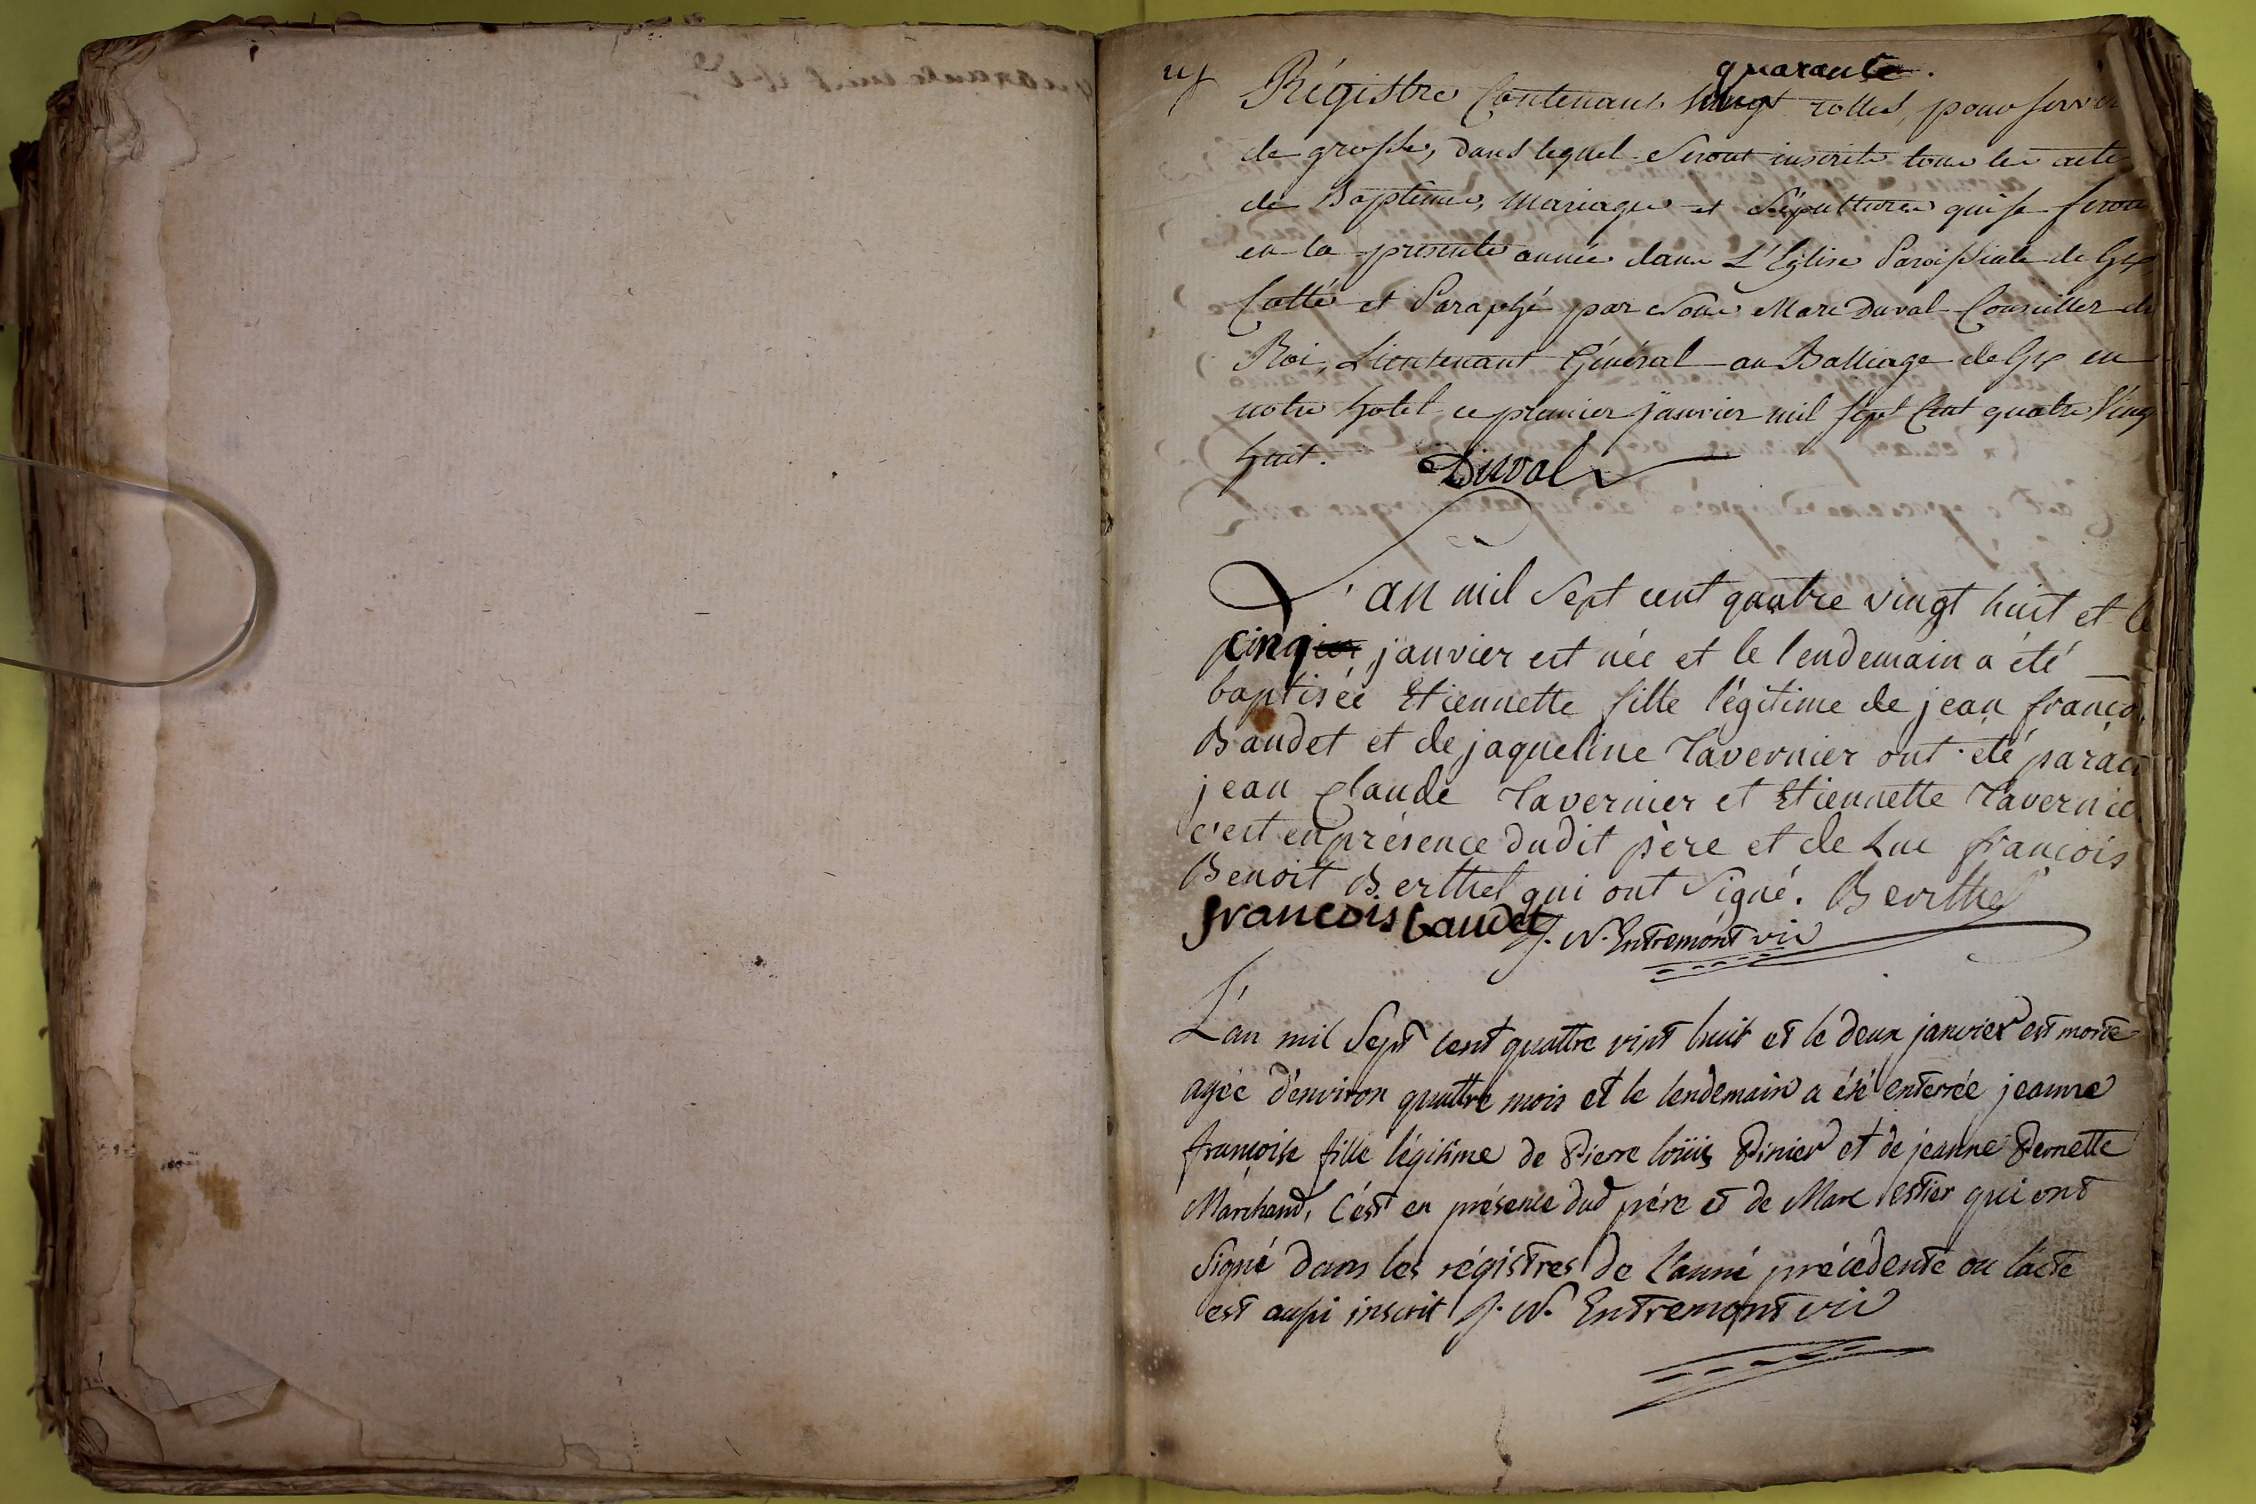 quarante
Régistre Contenant vingt rolles, pour servir
de grosse, dans lequel seront inscrits tous les actes
de Baptêmes, Mariages et Sépultures qui se feront
en la présente année dans L'Eglise Paroissiale de Gex
Cotté et Paraphé par Nous Marc Duval Conseiller du
Roi, Lieutenant Général au Balliage de Gex en
notre hotel ce premier janvier mil sept Cent quatre Vingt
huit. Duval
L'an mil Sept cent quatre vingt huit et le
cinq janvier est née et le lendemain a été
baptisée Etiennette fille légitime de jean françoi
Baudet et de jaqueline Tavernier ont été parain
jean Claude Tavernier et Etiennette Tavernie
c'est en présence dudit père et de Luc françois
Benoit Berthet qui ont Signé. Berthet
francois baudet J. N. Entremont vic
L'an mil Sept cent quattre vint huit et le deux janvier est morte
agée d'environ quattre mois et le lendemain a été enterrée jeanne
françoise fille légitime de Pierre loüis Pinier et de jeanne Pernette
Marchand, C'est en présence dud père et de Marc estier qui ont
Signé dans les régistres de l'anné précedente ou l'acte
est aussi inscrit J. N. Entremont vic